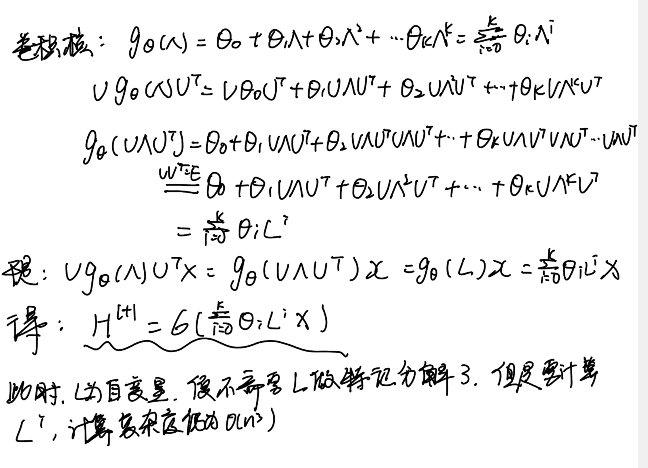 卷积核: gθ(Λ) = θ₀ + θ₁Λ + θ₂Λ² + ⋯θₖΛᵏ = Σᵢ₌₀ᵏ θᵢΛⁱ
U gθ(Λ)Uᵀ = Uθ₀Uᵀ + θ₁UΛUᵀ + θ₂UΛ²Uᵀ + ⋯ + θₖUΛᵏUᵀ
gθ(UΛUᵀ) = θ₀ + θ₁UΛUᵀ + θ₂UΛUᵀUΛUᵀ + ⋯ + θₖUΛUᵀUΛUᵀ⋯UΛUᵀ
UUᵀ=E
═ θ₀ + θ₁UΛUᵀ + θ₂UΛ²Uᵀ + ⋯ + θₖUΛᵏUᵀ
= Σᵢ₌₀ᵏ θᵢLⁱ
: Ugθ(Λ)Uᵀx = gθ(UΛUᵀ)x = gθ(L)x = Σᵢ₌₀ᵏ θᵢLⁱx
得: Hˡ⁺¹ = σ(Σᵢ₌₀ᵏ θᵢLⁱX)
此时, L为自变量, 便不需要L做特征分解了, 但是要计算
Lⁱ, 计算复杂度仍为O(n³)